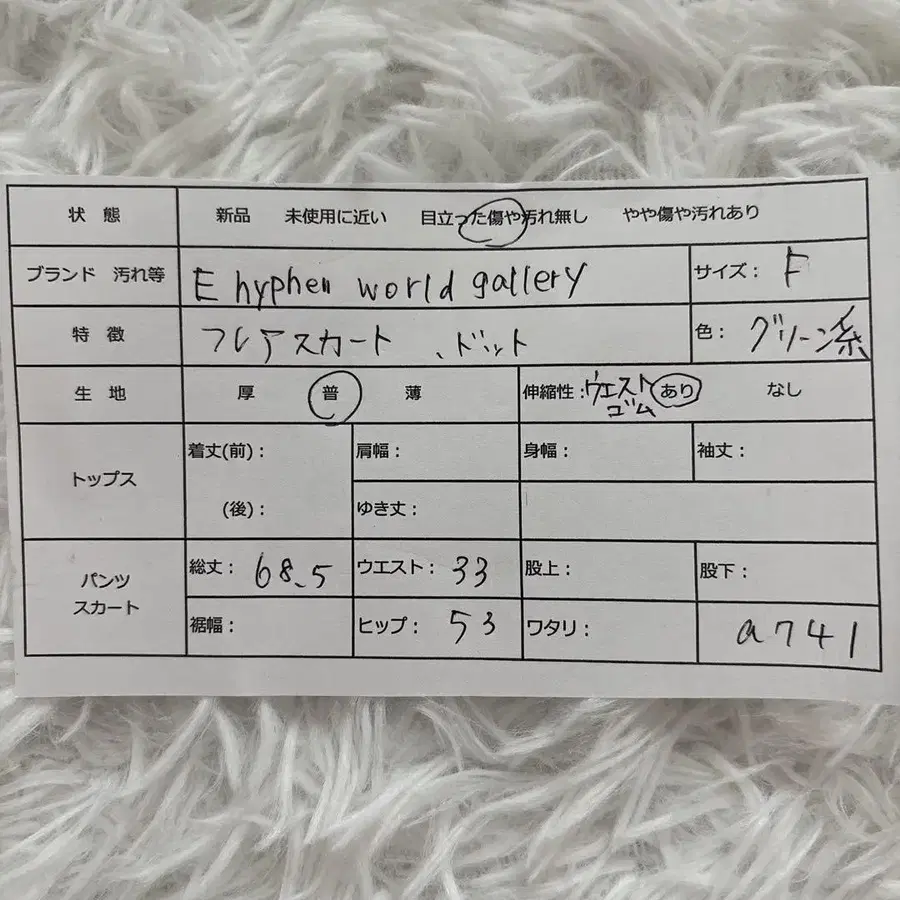 状 態 新品 未使用に近い 目立った傷や汚れ無し やや傷や汚れあり
ブランド 汚れ等 E hyphen world gallery サイズ: F
特 徴 フレアスカート 、ドット 色: グリーン系
生 地 厚 普 薄 伸縮性:ウエストゴム あり なし
トップス 着丈(前): 肩幅: 身幅: 袖丈:
(後): ゆき丈:
パンツ スカート 総丈: 68.5 ウエスト: 33 股上: 股下:
裾幅: ヒップ: 53 ワタリ: a741